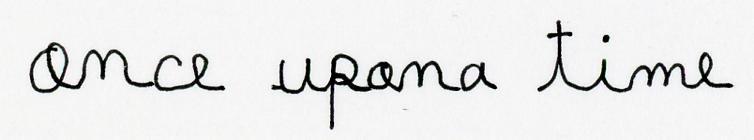 once upona time